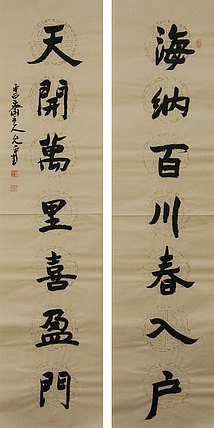 海納百川春入户
天開萬里喜盈門